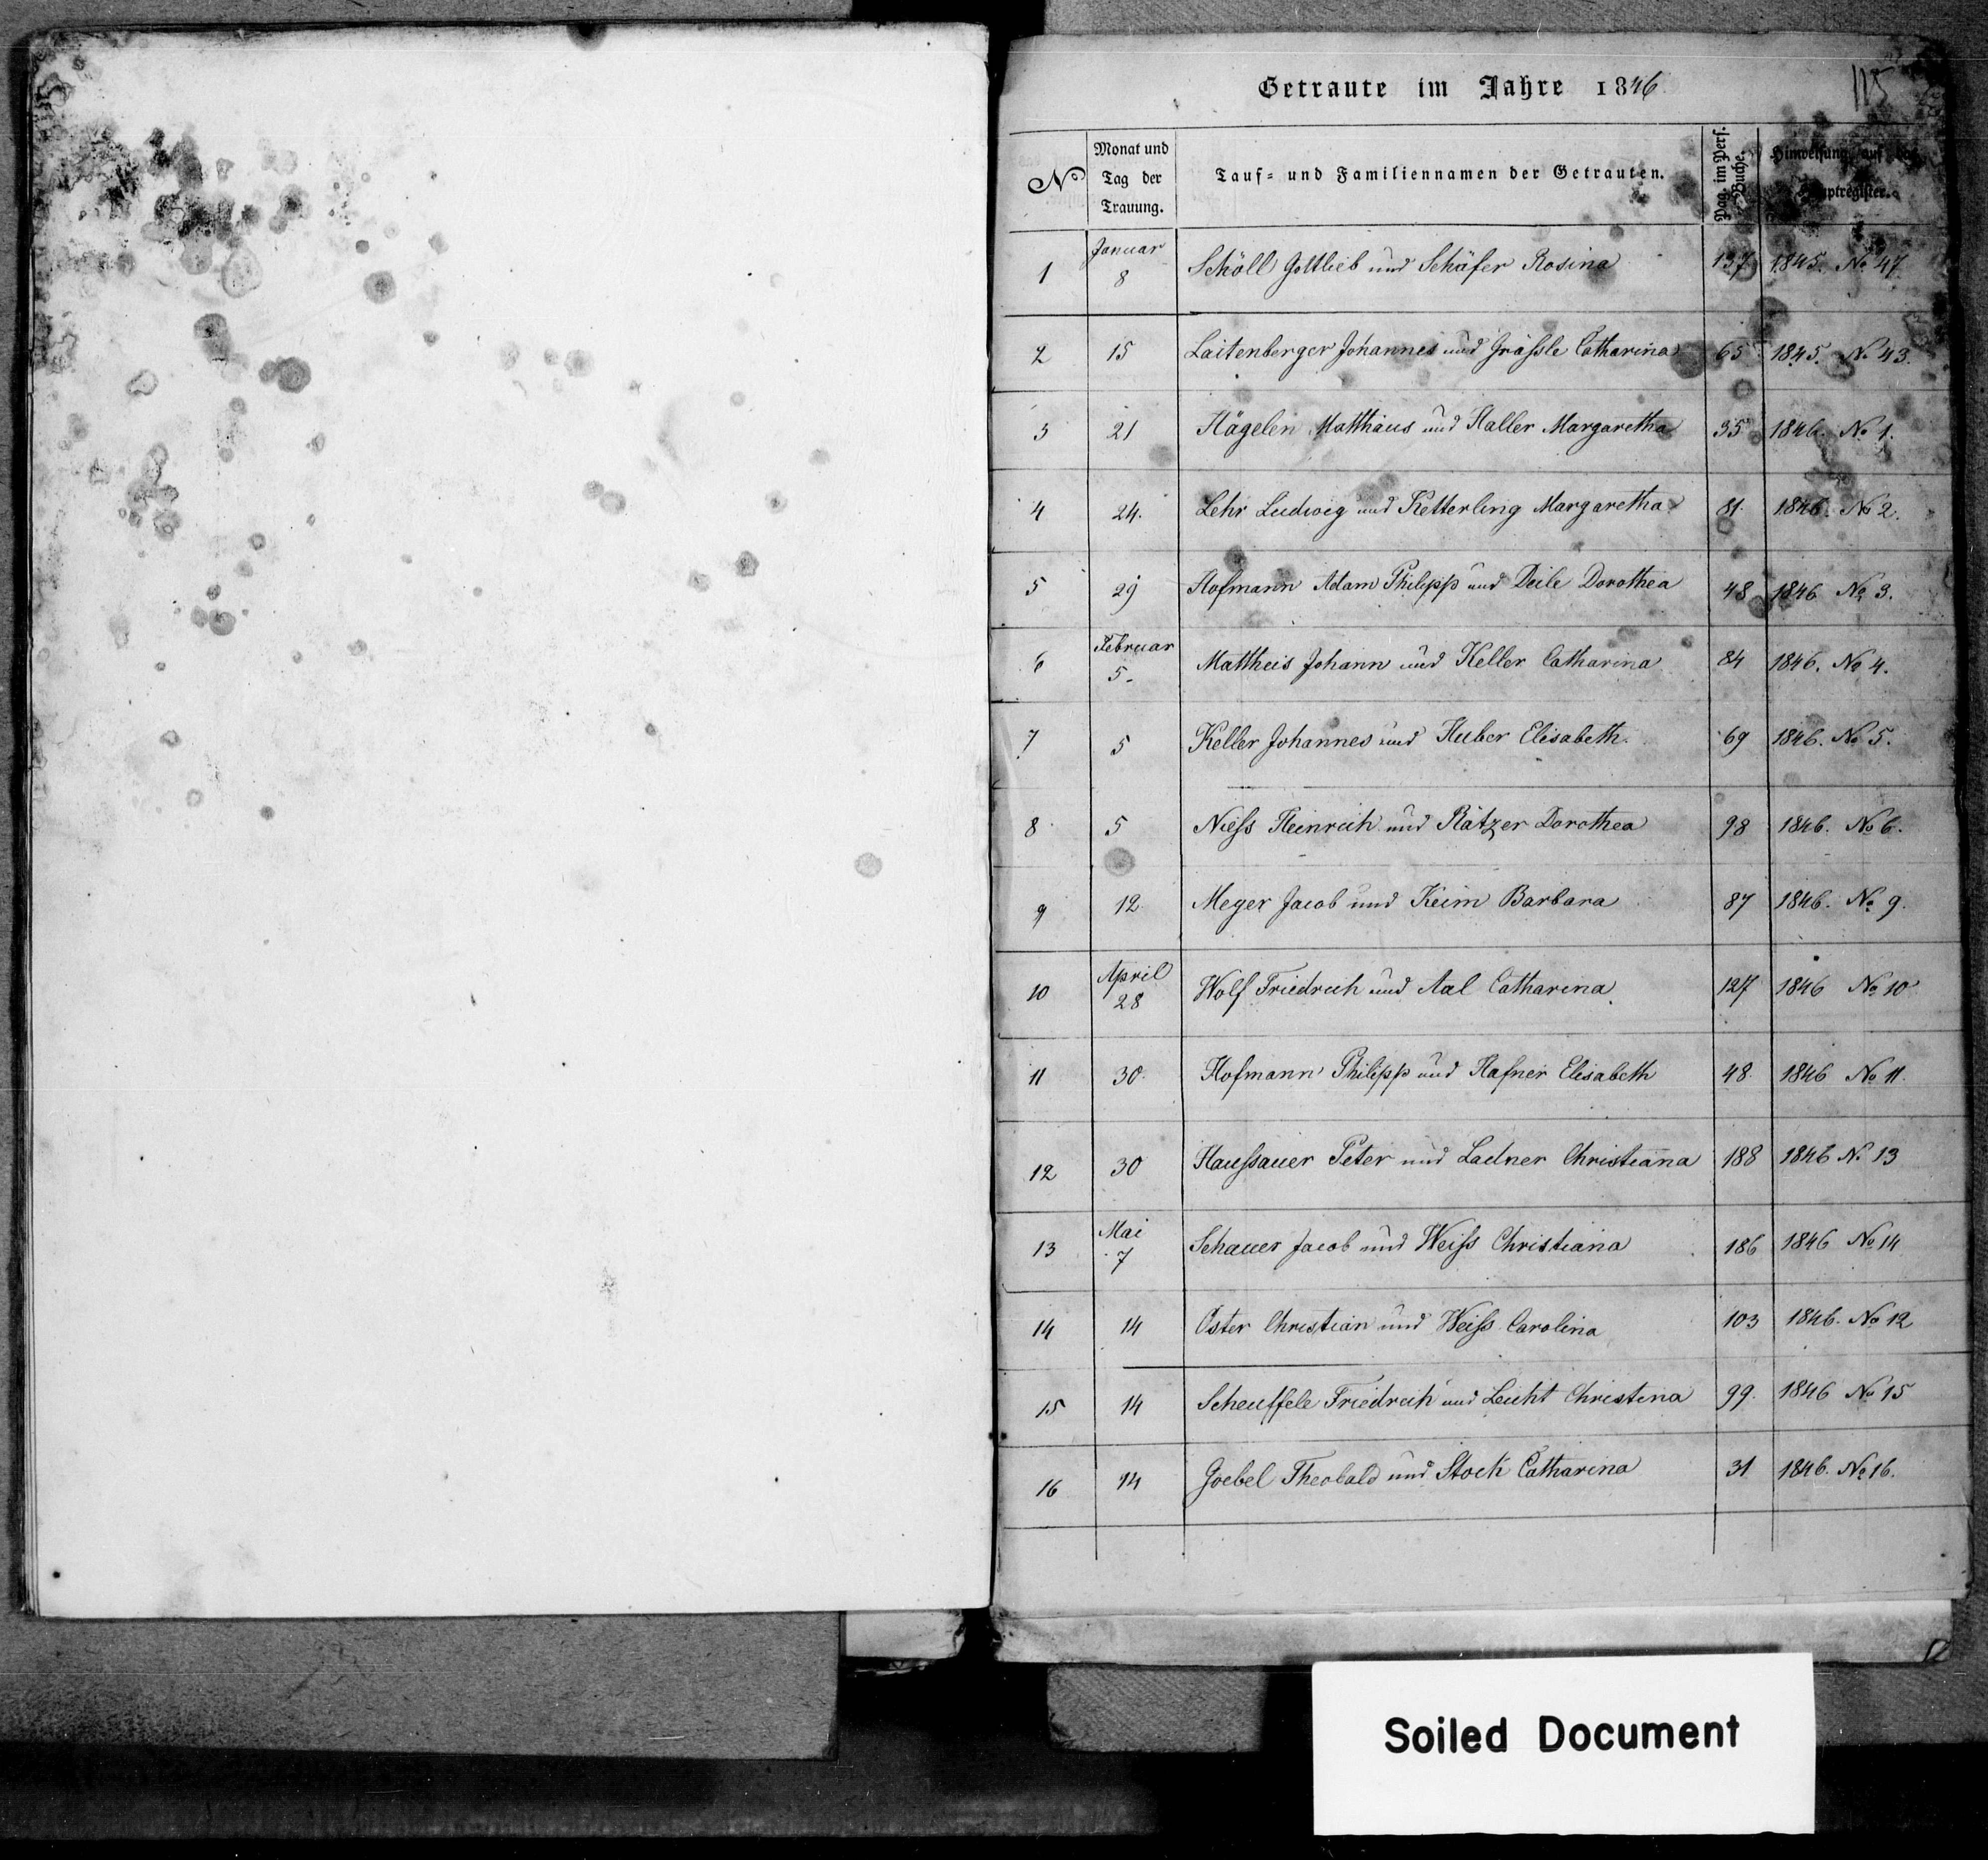 115
Getraute im Jahre 1846
No Monat und Tag der Trauung. Tauf- und Familiennamen der Getrauten. Pag. im Pers. Buche. Hinweisung auf das Hauptregister.
1 Januar 8 Schöll Gottlieb und Schäfer Rosina 137 1845. No 47
2 15 Laitenberger Johannes und Gräßle Catharina 65 1845. No 43.
3 21 Hägelen Matthäus und Haller Margaretha 35 1846. No 1.
4 24. Lehr Ludwig und Ketterling Margaretha 81. 1846. No 2.
5 29 Hofmann Adam Philipp und Deile Dorothea 48 1846 No 3.
6 Februar 5. Mattheis Johann und Keller Catharina 84 1846. No 4.
7 5 Keller Johannes und Huber Elisabeth. 69 1846. No 5.
8 5 Nieß Heinrich und Rätzer Dorothea 98 1846. No 6.
9 12 Meger Jacob und Keim Barbara 87 1846. No 9.
10 April 28 Wolf Friedrich und Aal Catharina 127 1846 No 10
11 30 Hofmann Philipp und Hafner Elisabeth 48. 1846 No 11.
12 30 Haußauer Peter und Ladner Christiana 188 1846 No 13
13 Mai 7 Schauer Jacob und Weiß Christiana 186 1846 No 14
14 14 Oster Christian und Weiß Carolina 103 1846. No 12
15 14 Scheuffele Friedrich und Leicht Christina 99. 1846 No 15
16 14 Goebel Theobald und Stock Catharina 31 1846. No 16.
Soiled Document